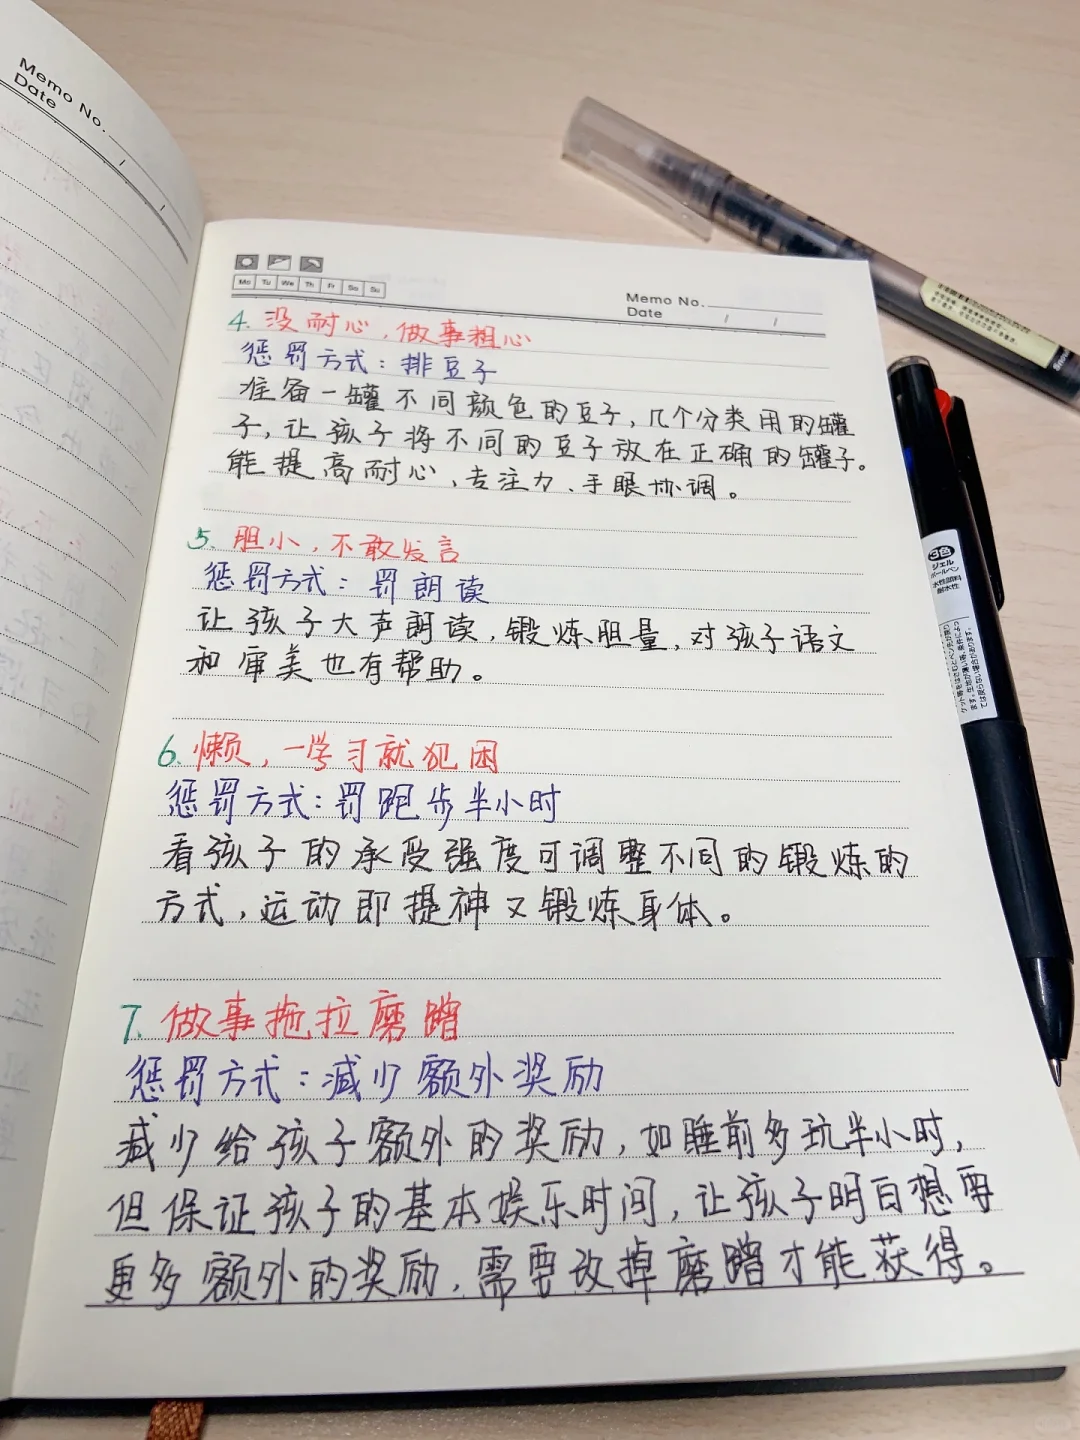 Memo No.
Date
Mo Tu We Th Fr Sa Su
Memo No.
Date
4. 没耐心，做事粗心
惩罚方式：排豆子
准备一罐不同颜色的豆子，几个分类用的罐
子，让孩子将不同的豆子放在正确的罐子。
能提高耐心、专注力、手眼协调。
5. 胆小，不敢发言
惩罚方式：罚朗读
让孩子大声朗读，锻炼胆量，对孩子语文
和审美也有帮助。
6. 懒，一学习就犯困
惩罚方式：罚跑步半小时
看孩子的承受强度可调整不同的锻炼的
方式，运动即提神又锻炼身体。
7. 做事拖拉磨蹭
惩罚方式：减少额外奖励
减少给孩子额外的奖励，如睡前多玩半小时，
但保证孩子的基本娱乐时间，让孩子明白想要
更多额外的奖励，需要改掉磨蹭才能获得。
3色
ジェル
ボールペン
水性顔料
耐水性